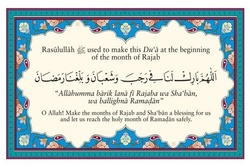 Rasūlullāh ﷺ used to make this Du'ā at the beginning
of the month of Rajab
اَللّٰهُمَّ بَارِكْ لَنَا فِيْ رَجَبَ وَشَعْبَانَ وَبَلِّغْنَا رَمَضَانَ
"Allāhumma bārik lanā fī Rajaba wa Sha'bān,
wa ballighnā Ramaḍān"
O Allah! Make the months of Rajab and Sha'bān a blessing for us
and let us reach the holy month of Ramaḍān safely.